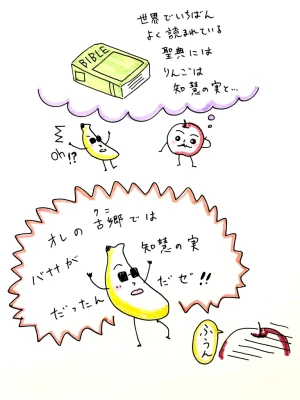 世界でいちばん
よく読まれている
聖典には
りんごは
知慧の実と…
BIBLE
Oh NO
!?
クニ
オレの古郷では
バナナが
知慧の実
だったんだゼ!!
ふうん